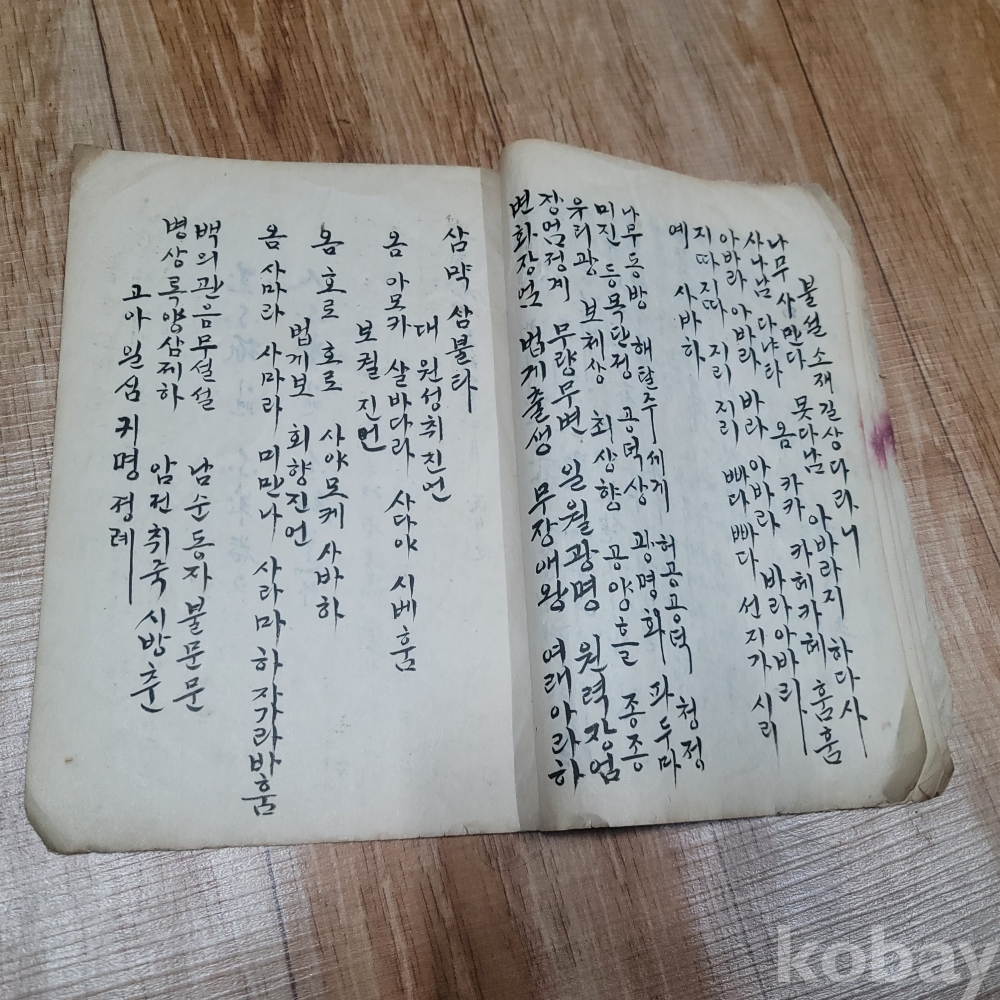 불설소재길상다라니
나무 사만다 못다남 아바라지 하다사
사나남 다냐타 옴 카카 카헤카헤 훔훔
아바라 아바라 바라아바라 바라아바라
지따지따 지리 지리 빠다빠다 선지가 시리
예 사바하
나무동방 해탈주세계 허공공덕 청정
미진 등목단정 공덕상 광명화 파두마
유리광 보체상 최상향 공양흘 종종
장엄정계 무량무변 일월광명 원력장엄
변화장엄 법계출생 무장애왕 여래아라하
삼먁삼불타
대원성취진언
옴 아모카 살바다라 사다야 시베훔
보궐진언
옴 호로 호로 사야모케 사바하
법계보 회향진언
옴 사마라 사마라 미만나 사라마하자가라바훔
백의관음무설설 남순동자불문문
병상록양삼제하 암전취죽시방춘
고아일심귀명정례
kobay